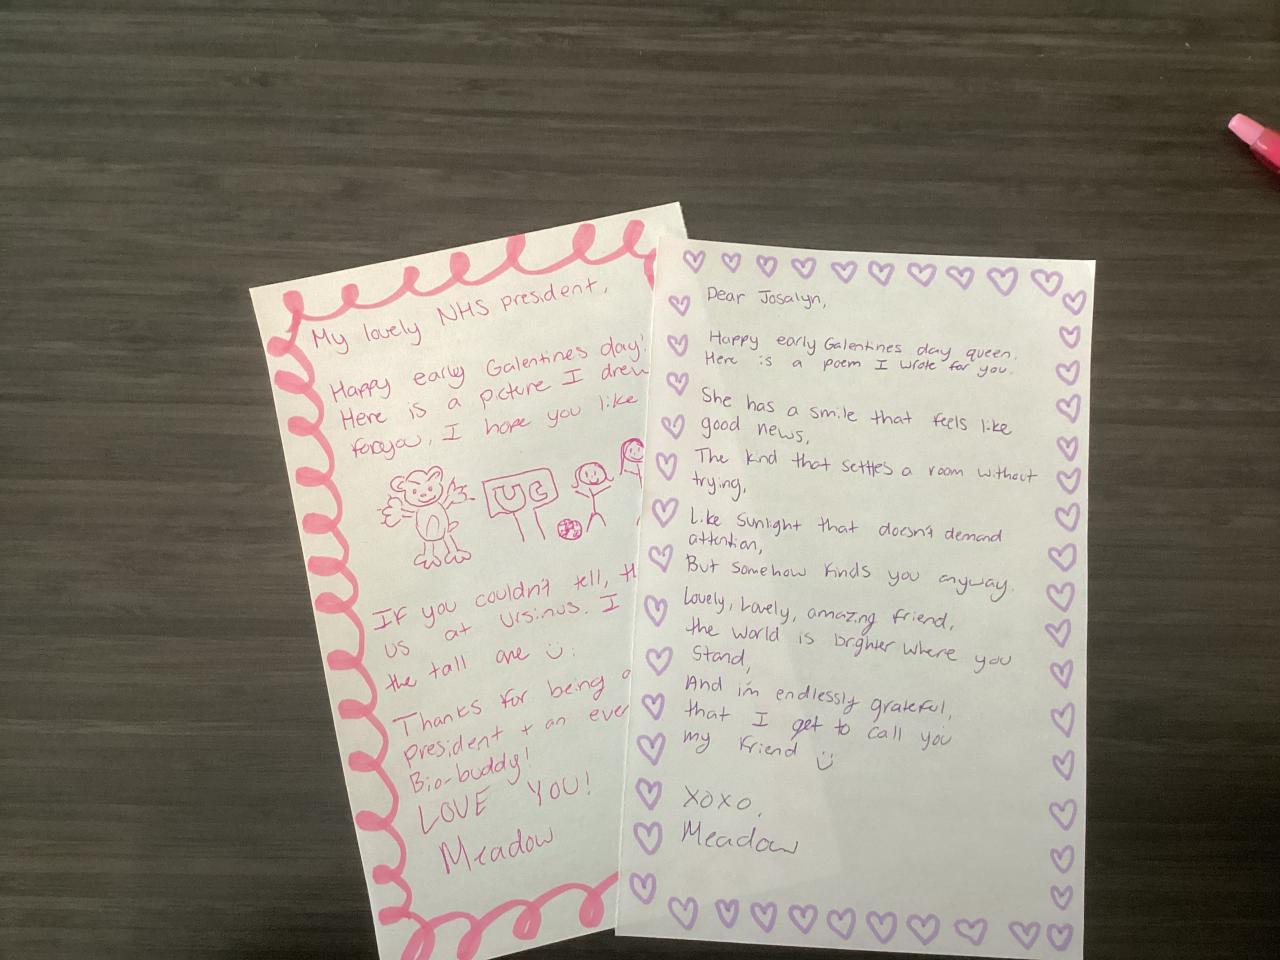 My lovely NHS president,
Happy early Galentines day!
Here is a picture I drew
foryou, I hope you like
UC
If you couldn't tell, th
us at Ursinus. I
the tall one
Thanks for being a
president + an eve
Bio-buddy!
LOVE YOU!
Meadow
Dear Josalyn,
Happy early Galentines day queen.
Here is a poem I wrote for you.
She has a smile that feels like
good news,
The kind that settles a room without
trying,
Like sunlight that doesn't demand
attention,
But somehow kinds you anyway.
Lovely, Lovely, amazing friend,
the world is brghter where you
Stand,
And i'm endlessly grateful,
that I get to call you
my friend
XOXO,
Meadow